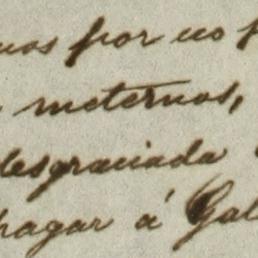 por no
meternos,
desgraciada
pagar á Gal